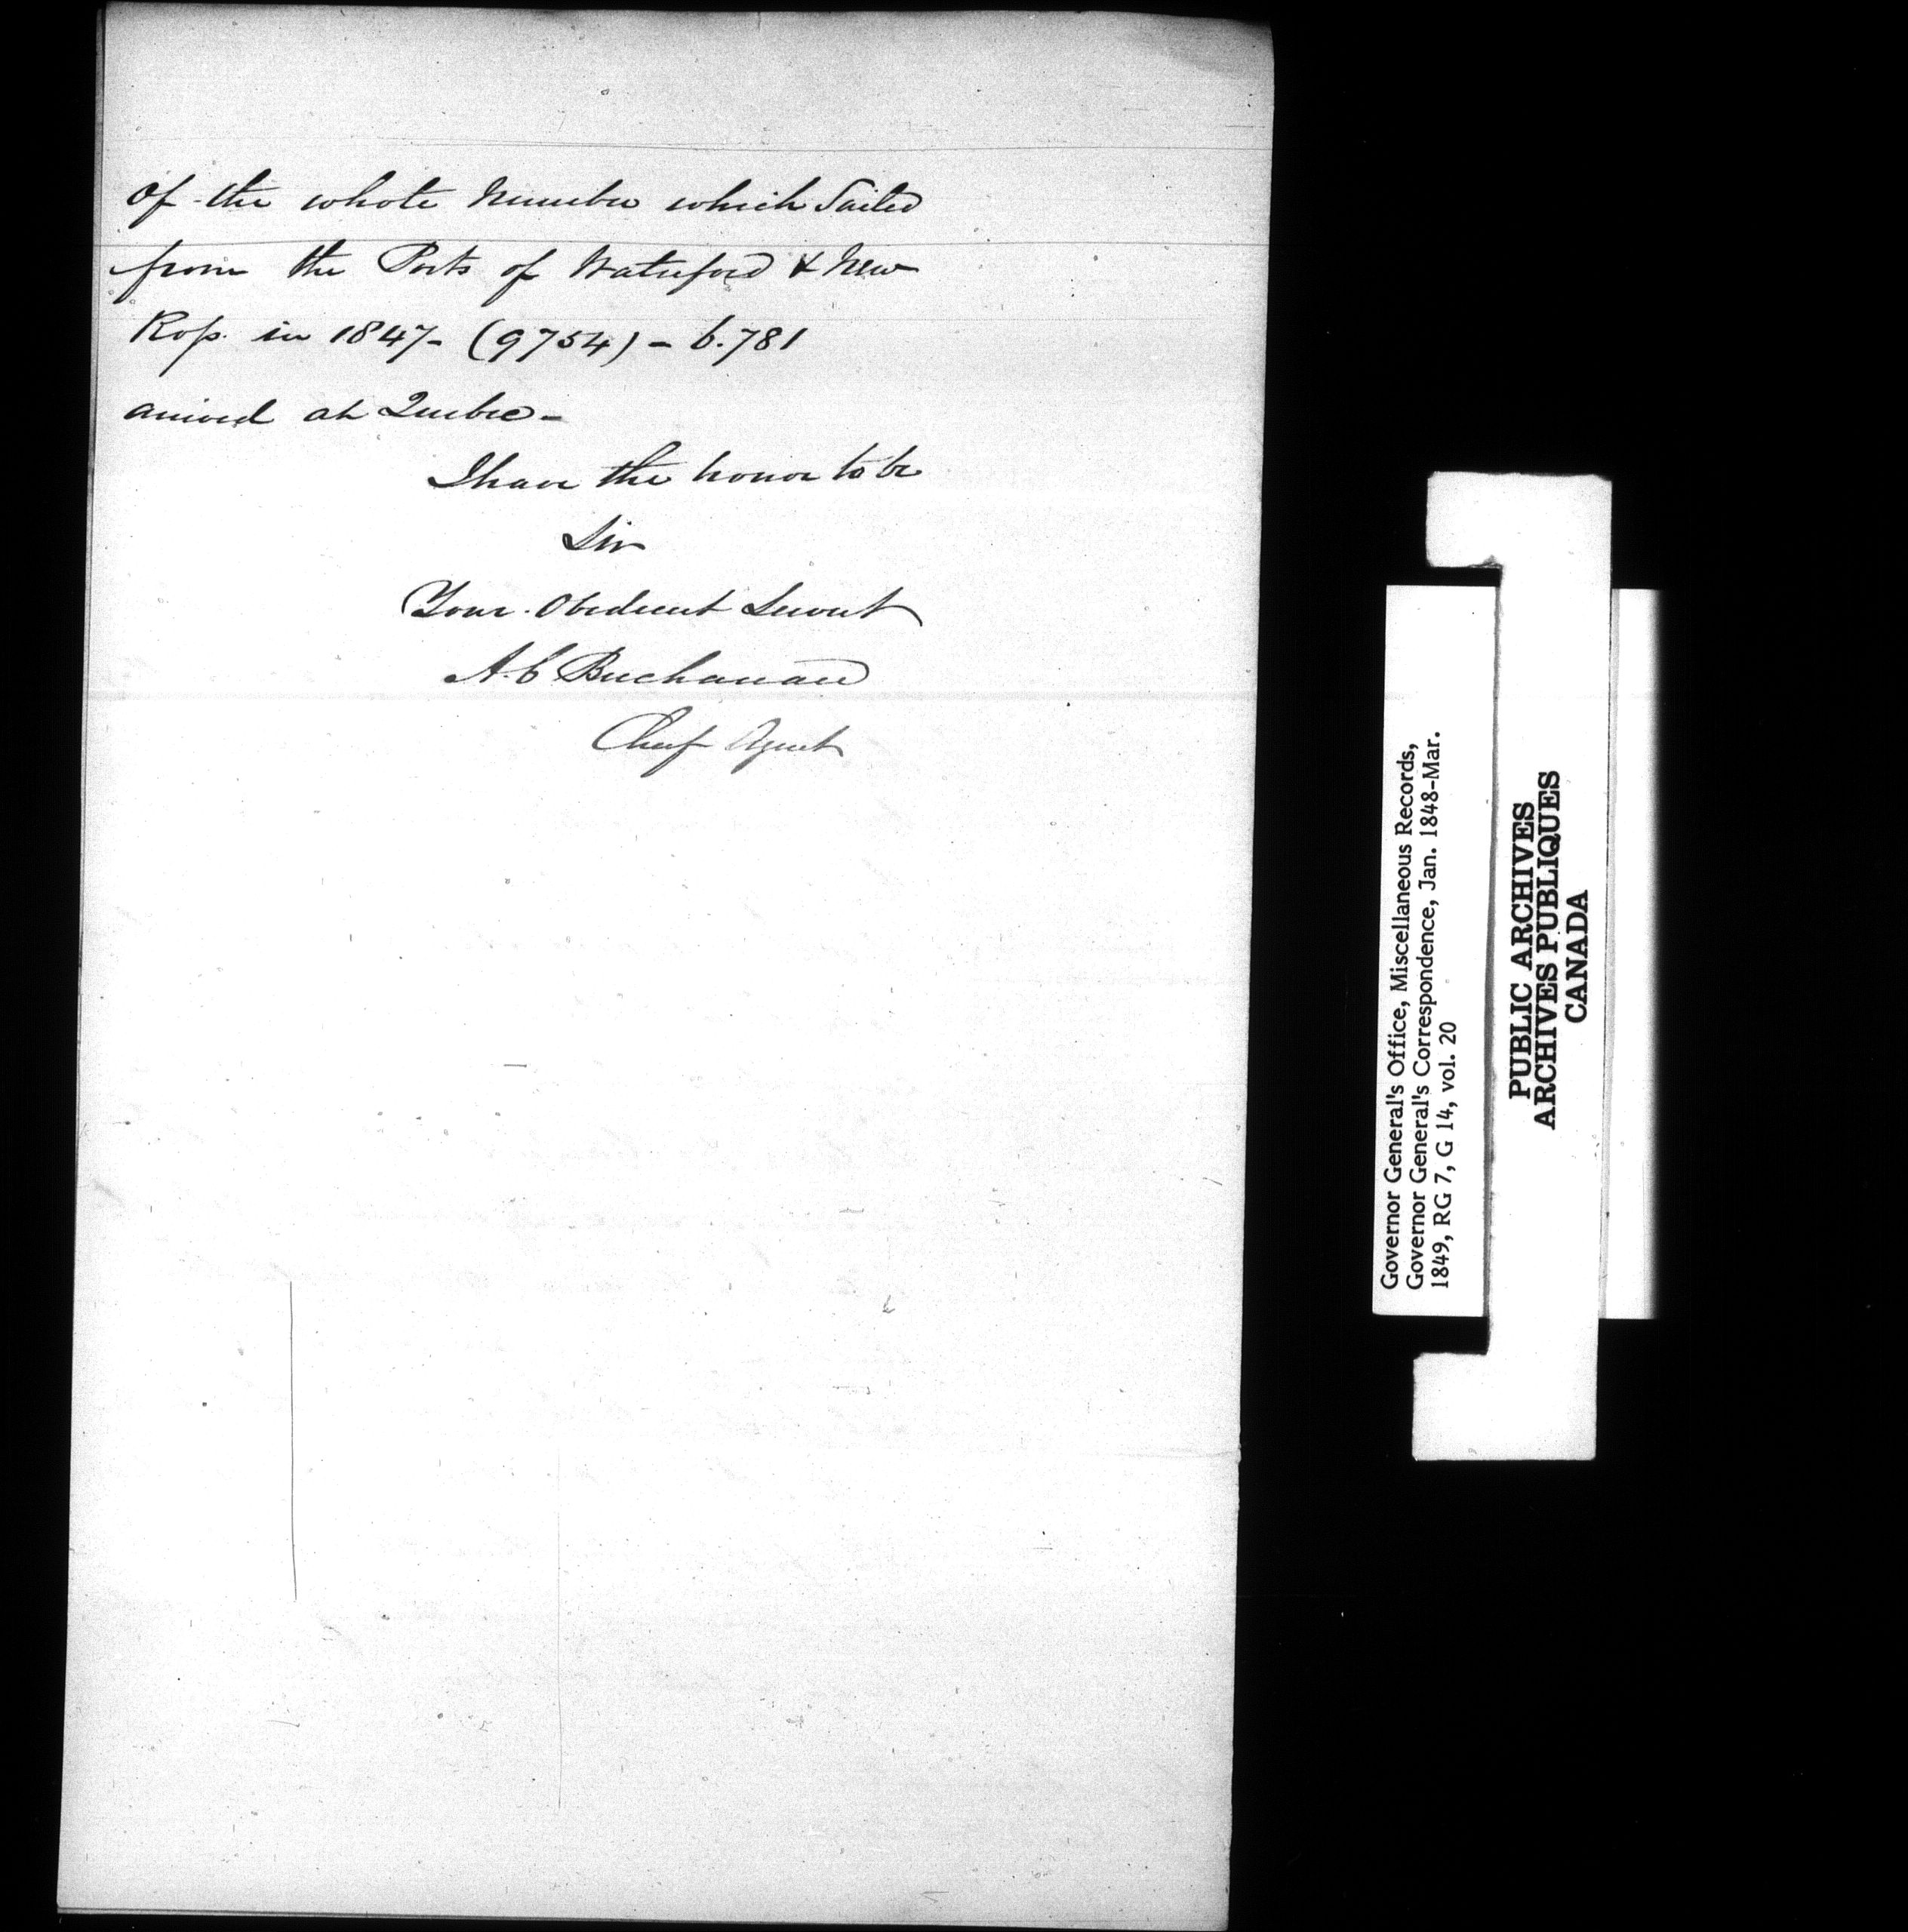 Of the whole Number which Sailed
from the Ports of Waterford & New
Ross in 1847- (9754) - 6.781
arrived at Quebec -
I have the honor to be
Sir
Your Obedient Servant
A. C Buchanan
Chief Agent
Governor General's Office, Miscellaneous Records,
Governor General's Correspondence, Jan. 1848-Mar.
1849, RG 7, G 14, vol. 20
PUBLIC ARCHIVES
ARCHIVES PUBLIQUES
CANADA